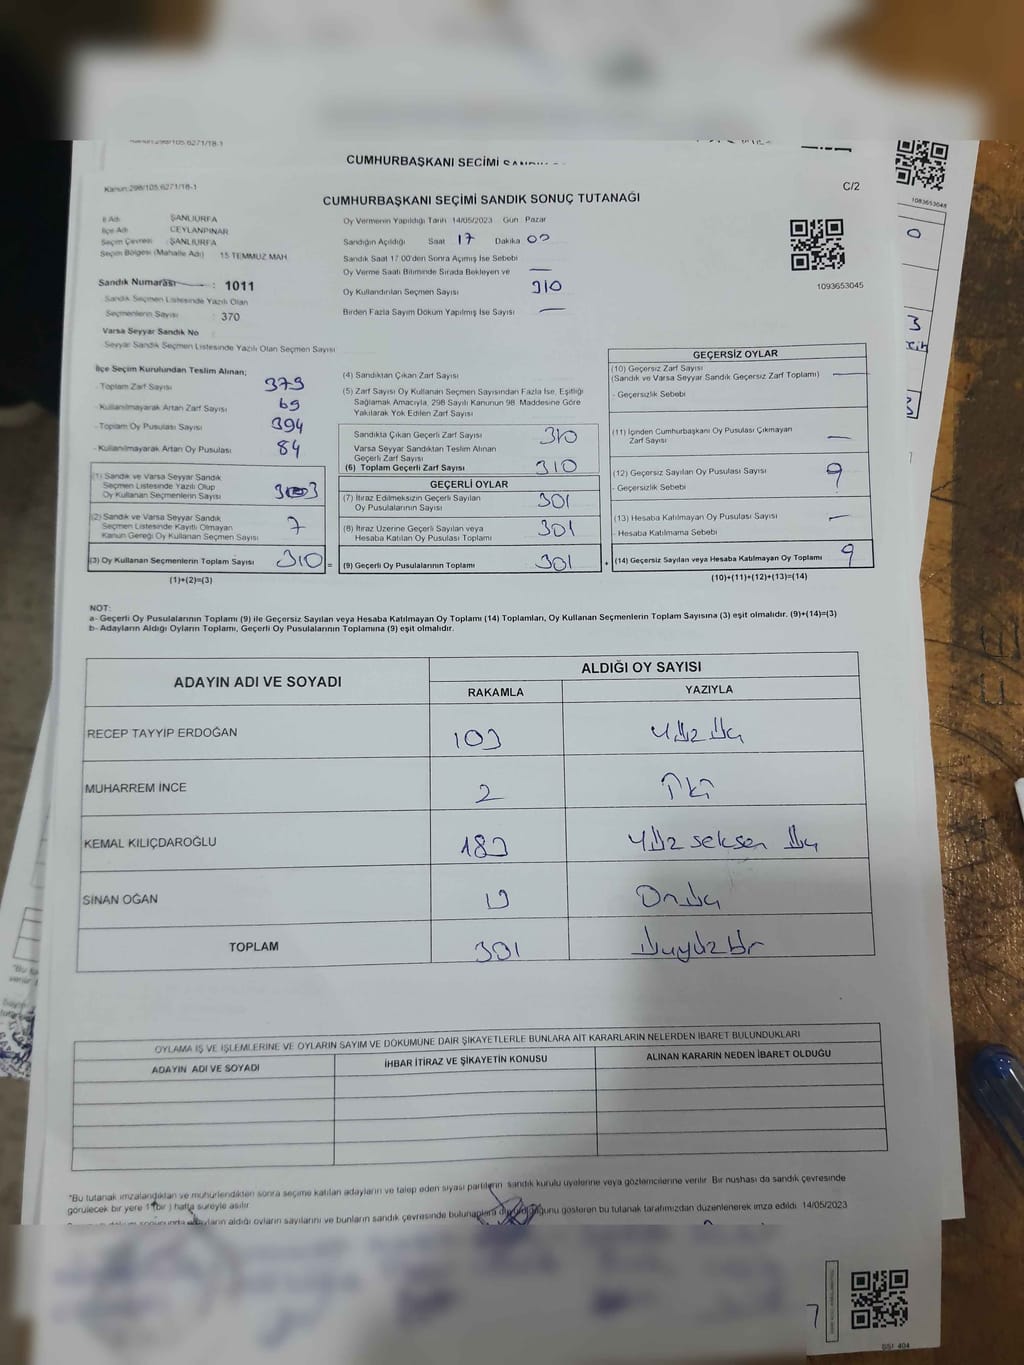 CUMHURBAŞKANI SEÇİMİ
Kanun:298/105.6271/18-1
C/2
CUMHURBAŞKANI SEÇİMİ SANDIK SONUÇ TUTANAĞI
İl Adı : ŞANLIURFA
İlçe Adı : CEYLANPINAR
Seçim Çevresi : ŞANLIURFA
Seçim Bölgesi (Mahalle Adı) 15 TEMMUZ MAH.
Sandık Numarası : 1011
Sandık Seçmen Listesinde Yazılı Olan
Seçmenlerin Sayısı : 370
Varsa Seyyar Sandık No :
Seyyar Sandık Seçmen Listesinde Yazılı Olan Seçmen Sayısı
Oy Vermenin Yapıldığı Tarih 14/05/2023 Gün Pazar
Sandığın Açıldığı Saat 17 Dakika 00
Sandık Saat 17:00'den Sonra Açımış İse Sebebi
Oy Verme Saati Bitiminde Sırada Bekleyen ve —
Oy Kullandırılan Seçmen Sayısı 310
Birden Fazla Sayım Döküm Yapılmış İse Sayısı —
1093653045
İlçe Seçim Kurulundan Teslim Alınan;
- Toplam Zarf Sayısı 379
- Kullanılmayarak Artan Zarf Sayısı 69
- Toplam Oy Pusulası Sayısı 394
- Kullanılmayarak Artan Oy Pusulası 84
(1) Sandık ve Varsa Seyyar Sandık
Seçmen Listesinde Yazılı Olup
Oy Kullanan Seçmenlerin Sayısı
(2) Sandık ve Varsa Seyyar Sandık
Seçmen Listesinde Kayıtlı Olmayan
Kanun Gereği Oy Kullanan Seçmen Sayısı 7
(3) Oy Kullanan Seçmenlerin Toplam Sayısı 310
(1)+(2)=(3)
(4) Sandıktan Çıkan Zarf Sayısı
(5) Zarf Sayısı Oy Kullanan Seçmen Sayısından Fazla İse, Eşitliği
Sağlamak Amacıyla, 298 Sayılı Kanunun 98. Maddesine Göre
Yakılarak Yok Edilen Zarf Sayısı
Sandıkta Çıkan Geçerli Zarf Sayısı 310
Varsa Seyyar Sandıktan Teslim Alınan
Geçerli Zarf Sayısı
(6) Toplam Geçerli Zarf Sayısı 310
GEÇERLİ OYLAR
(7) İtiraz Edilmeksizin Geçerli Sayılan
Oy Pusulalarının Sayısı 301
(8) İtiraz Üzerine Geçerli Sayılan veya
Hesaba Katılan Oy Pusulası Toplamı 301
= (9) Geçerli Oy Pusulalarının Toplamı 301
GEÇERSİZ OYLAR
(10) Geçersiz Zarf Sayısı
(Sandık ve Varsa Seyyar Sandık Geçersiz Zarf Toplamı) —
- Geçersizlik Sebebi
(11) İçinden Cumhurbaşkanı Oy Pusulası Çıkmayan
Zarf Sayısı —
(12) Geçersiz Sayılan Oy Pusulası Sayısı 9
- Geçersizlik Sebebi
(13) Hesaba Katılmayan Oy Pusulası Sayısı —
- Hesaba Katılmama Sebebi
+ (14) Geçersiz Sayılan veya Hesaba Katılmayan Oy Toplamı 9
(10)+(11)+(12)+(13)=(14)
NOT:
a- Geçerli Oy Pusulalarının Toplamı (9) ile Geçersiz Sayılan veya Hesaba Katılmayan Oy Toplamı (14) Toplamları, Oy Kullanan Seçmenlerin Toplam Sayısına (3) eşit olmalıdır. (9)+(14)=(3)
b- Adayların Aldığı Oyların Toplamı, Geçerli Oy Pusulalarının Toplamına (9) eşit olmalıdır.
ADAYIN ADI VE SOYADI
ALDIĞI OY SAYISI
RAKAMLA YAZIYLA
RECEP TAYYİP ERDOĞAN 103 Yüz üç
MUHARREM İNCE 2 İki
KEMAL KILIÇDAROĞLU 183 Yüz seksen üç
SİNAN OĞAN 13 On üç
TOPLAM 301 Üçyüzbir
OYLAMA İŞ VE İŞLEMLERİNE VE OYLARIN SAYIM VE DÖKÜMÜNE DAİR ŞİKAYETLERLE BUNLARA AİT KARARLARIN NELERDEN İBARET BULUNDUKLARI
ADAYIN ADI VE SOYADI İHBAR İTİRAZ VE ŞİKAYETİN KONUSU ALINAN KARARIN NEDEN İBARET OLDUĞU
*Bu tutanak imzalandıktan ve mühürlendikten sonra seçime katılan adayların ve talep eden siyasi partilerin sandık kurulu üyelerine veya gözlemcilerine verilir. Bir nushası da sandık çevresinde
görülecek bir yere 1 (bir) hafta süreyle asılır.
adayların aldığı oyların sayılarını ve bunların sandık çevresinde gösteren bu tutanak tarafımızdan düzenlenerek imza edildi. 14/05/2023
7